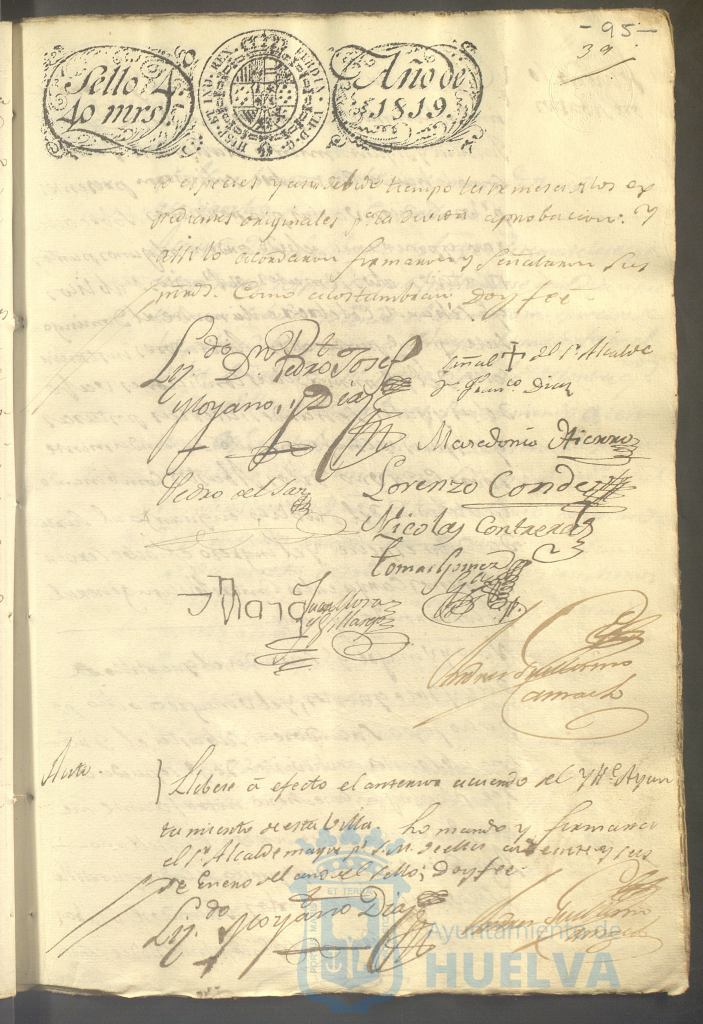 - 95 -
39
Sello 4º
40 mrs
HISP. ET IND. REX. FERDIN. VII. D. G.
Año de
1819.
especies y a su debido tiempo la remesa a los ex
pedientes originales pª la devida aprobacion: y
assi lo acordaron firmaron y señalaron sus
mrds. como acostumbran Doy fee =
Liz.do D.n Pedro Josef
Moyano, y Diaz
Señal + del Sr. Alcalde
D. Fran.co Diaz
Macedonio Hierro
Pedro del Saz
Lorenzo Conde
Nicolas Contreras
Tomas Gomez
Juan Mora
y Villarejo
Andres Guillermo
Camacho
Auto.
Llebese á efecto el anterior acuerdo del Yll.e Ayun
tamiento de esta Villa. lo mando y firma
el Sr. Alcalde mayor pr. S. M. de ella en veinte y seis
de Enero del año del sello; Doy fee =
Liz.do Moyano Diaz
Andres Guillermo
Camacho
PORTUS MARIS ET TERRÆ
Ayuntamiento de
HUELVA